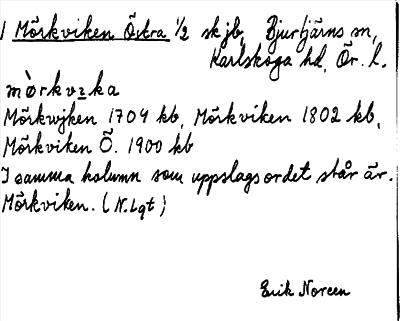 1 Mörkviken Östra 1/2 sk jb, Bjurtjärns sn,
Karlskoga hd, Ör. l.
mòrkvɪka
Mörkwjken 1704 kb, Mörkviken 1802 kb,
Mörkviken Ö. 1900 kb
I samma kolumn som uppslagsordet står är.
Mörkviken. (N. Lgt)
Erik Noreen